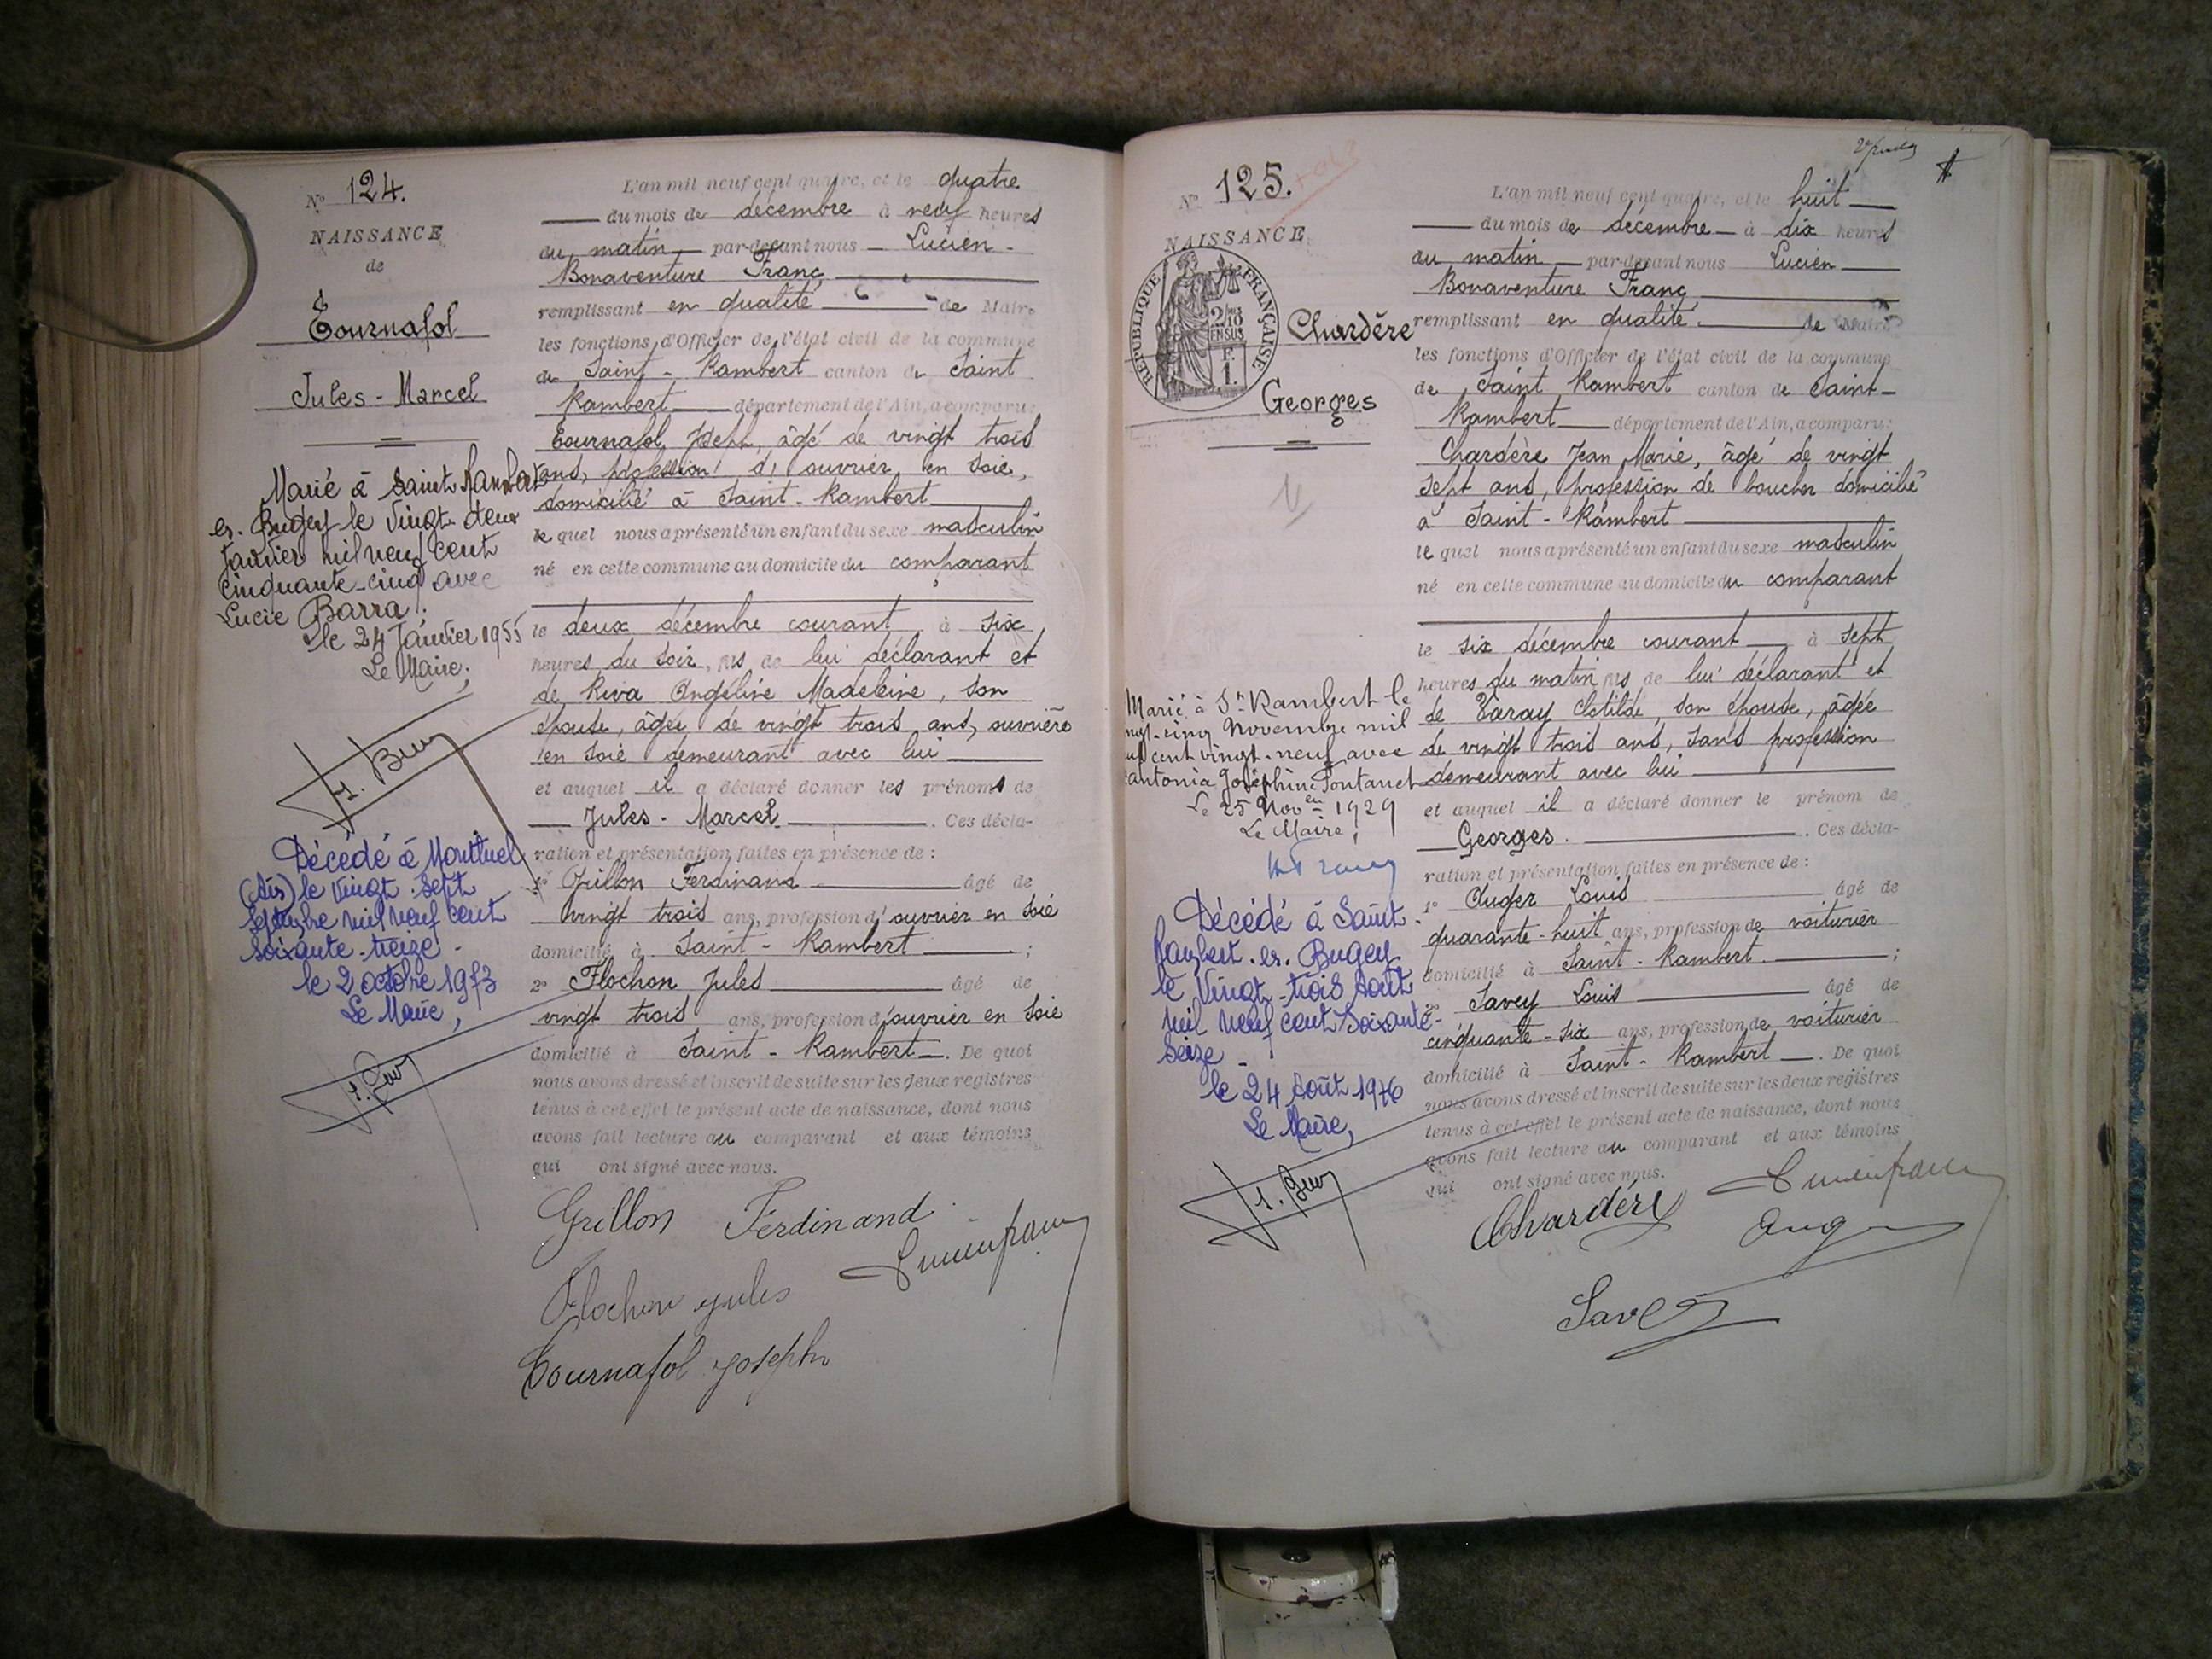 N° 124.
NAISSANCE
de
Tournafol
Jules-Marcel
Marié à Saint Rambert
en-Bugey le vingt-deux
janvier mil neuf cent
cinquante-cinq avec
Lucie Barra.
le 24 Janvier 1955
Le Maire,
Décédé à Montluel
(Ain) le vingt-sept
septembre mil neuf cent
soixante-treize-
le 2 octobre 1973
Le Maire,
L'an mil neuf cent quatre, et le quatre
du mois de décembre à neuf heures
du matin par-devant nous Lucien-
Bonaventure Franc
remplissant en qualité de Maire
les fonctions d'Officier de l'état civil de la commune
de Saint-Rambert canton de Saint
Rambert département de l'Ain, a comparu:
Tournafol Joseph, âgé de vingt trois
ans, profession d'ouvrier en soie,
domicilié à Saint-Rambert
lequel nous a présenté un enfant du sexe masculin
né en cette commune au domicile du comparant
le deux décembre courant à six
heures du soir, fils de lui déclarant et
de Riva Angéline Madeleine, son
épouse, âgée de vingt trois ans, ouvrière
en soie demeurant avec lui
et auquel il a déclaré donner les prénoms de
Jules-Marcel. Ces décla-
ration et présentation faites en présence de :
1° Grillon Ferdinand âgé de
vingt trois ans, profession d'ouvrier en soie
domicilié à Saint-Rambert ;
2° Flochon Jules âgé de
vingt trois ans, profession d'ouvrier en soie
domicilié à Saint-Rambert. De quoi
nous avons dressé et inscrit de suite sur les deux registres
tenus à cet effet le présent acte de naissance, dont nous
avons fait lecture au comparant et aux témoins
qui ont signé avec nous.
Grillon Ferdinand
Flochon jules
Tournafol joseph
N° 125.
NAISSANCE
RÉPUBLIQUE FRANÇAISE
2/10
EN SUS
F.
1.
Chardère
Georges
Marié à St Rambert le
vingt-cinq Novembre mil
neuf cent vingt-neuf avec
Antonia Joséphine Fontanet
Le 25 Novbre 1929
Le Maire,
Décédé à Saint
Rambert-en-Bugey
le vingt-trois août
mil neuf cent soixante-
seize-
le 24 août 1976
Le Maire,
L'an mil neuf cent quatre, et le huit
du mois de décembre à dix heures
du matin par-devant nous Lucien
Bonaventure Franc
remplissant en qualité de Maire
les fonctions d'Officier de l'état civil de la commune
de Saint Rambert canton de Saint-
Rambert département de l'Ain, a comparu:
Chardère Jean Marie, âgé de vingt
sept ans, profession de boucher domicilié
à Saint-Rambert
lequel nous a présenté un enfant du sexe masculin
né en cette commune au domicile du comparant
le six décembre courant à sept
heures du matin fils de lui déclarant et
de Taray Clotilde, son épouse, âgée
de vingt trois ans, sans profession
demeurant avec lui
et auquel il a déclaré donner le prénom de
Georges. Ces décla-
ration et présentation faites en présence de :
1° Auger Louis âgé de
quarante-huit ans, profession de voiturier
domicilié à Saint-Rambert ;
2° Savey Louis âgé de
cinquante-six ans, profession de voiturier
domicilié à Saint-Rambert. De quoi
nous avons dressé et inscrit de suite sur les deux registres
tenus à cet effet le présent acte de naissance, dont nous
avons fait lecture au comparant et aux témoins
qui ont signé avec nous.
Chardère
Auger
Savey